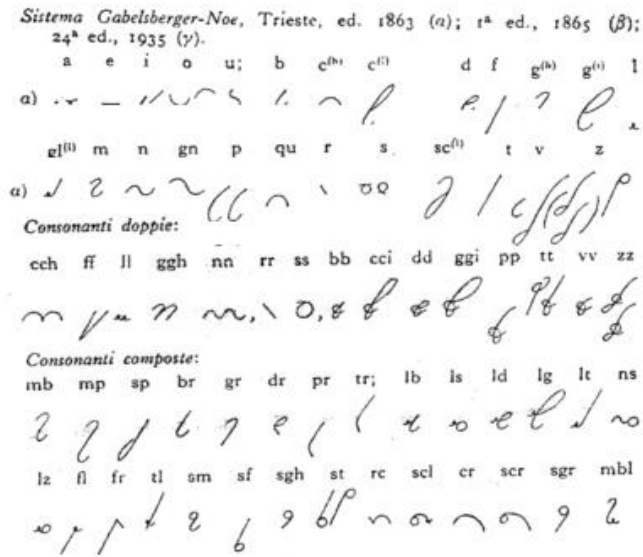 Sistema Gabelsberger-Noe, Trieste, ed. 1863 (α); 1ª ed., 1865 (β);
24ª ed., 1935 (γ).
a e i o u; b c⁽ʰ⁾ c⁽ⁱ⁾ d f g⁽ʰ⁾ g⁽ⁱ⁾ l
α)
gl⁽ⁱ⁾ m n gn p qu r s sc⁽ⁱ⁾ t v z
α)
Consonanti doppie:
cch ff ll ggh nn rr ss bb cci dd ggi pp tt vv zz
Consonanti composte:
mb mp sp br gr dr pr tr; lb ls ld lg lt ns
lz fl fr tl sm sf sgh st rc scl cr scr sgr mbl